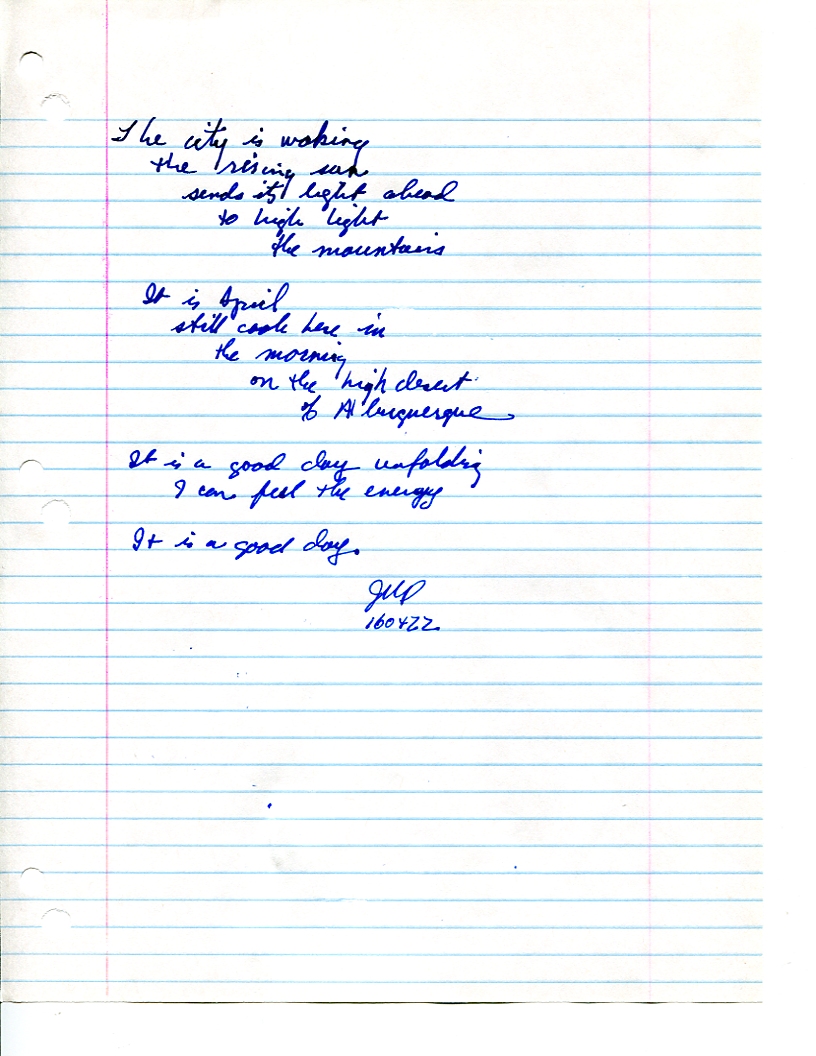 The city is waking
the rising sun
sends its light ahead
to high light
the mountains
It is April
still cool here in
the morning
on the high desert
of Albuquerque
It is a good day unfolding
I can feel the energy
It is a good day.
JMP
160422